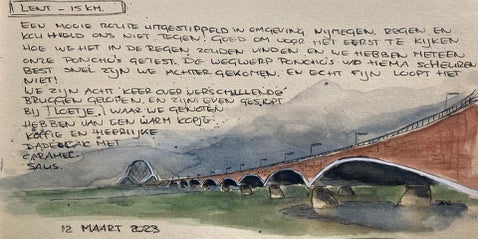 LENT - 15 KM.
EEN MOOIE ROUTE UITGESTIPPELD IN OMGEVING NIJMEGEN. REGEN EN
KOU HIELD ONS NIET TEGEN! GOED OM VOOR HET EERST TE KIJKEN
HOE WE HET IN DE REGEN ZOUDEN VINDEN EN WE HEBBEN METEEN
ONZE PONCHO'S GETEST. DE WEGWERP PONCHO'S VAN HEMA SCHEUREN
BEST SNEL ZIJN WE ACHTER GEKOMEN. EN ECHT FIJN LOOPT HET
NIET!
WE ZIJN ACHT KEER OVER VERSCHILLENDE
BRUGGEN GELOPEN, EN ZIJN EVEN GESTOPT
BIJ , WAAR WE GENOTEN
HEBBEN VAN EEN WARM KOPJE
KOFFIE EN HEERLIJKE
DADELCAKE MET
CARAMEL
SAUS.
12 MAART 2023